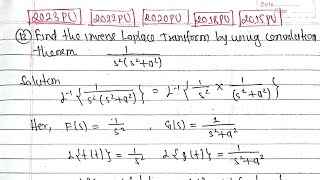 2023PU 2022PU 2020PU 2018PU 2015PU
Date
(13) Find the invense Laplace Transform by using convolution
theorem 1/(s²(s²+a²))
Solution
L⁻¹{1/(s²(s²+a²))} = L⁻¹{1/s² × 1/(s²+a²)}
Her, F(s) = 1/s² , G(s) = 1/(s²+a²)
L{f(t)} = 1/s² L{g(t)} = 1/(s²+a²)